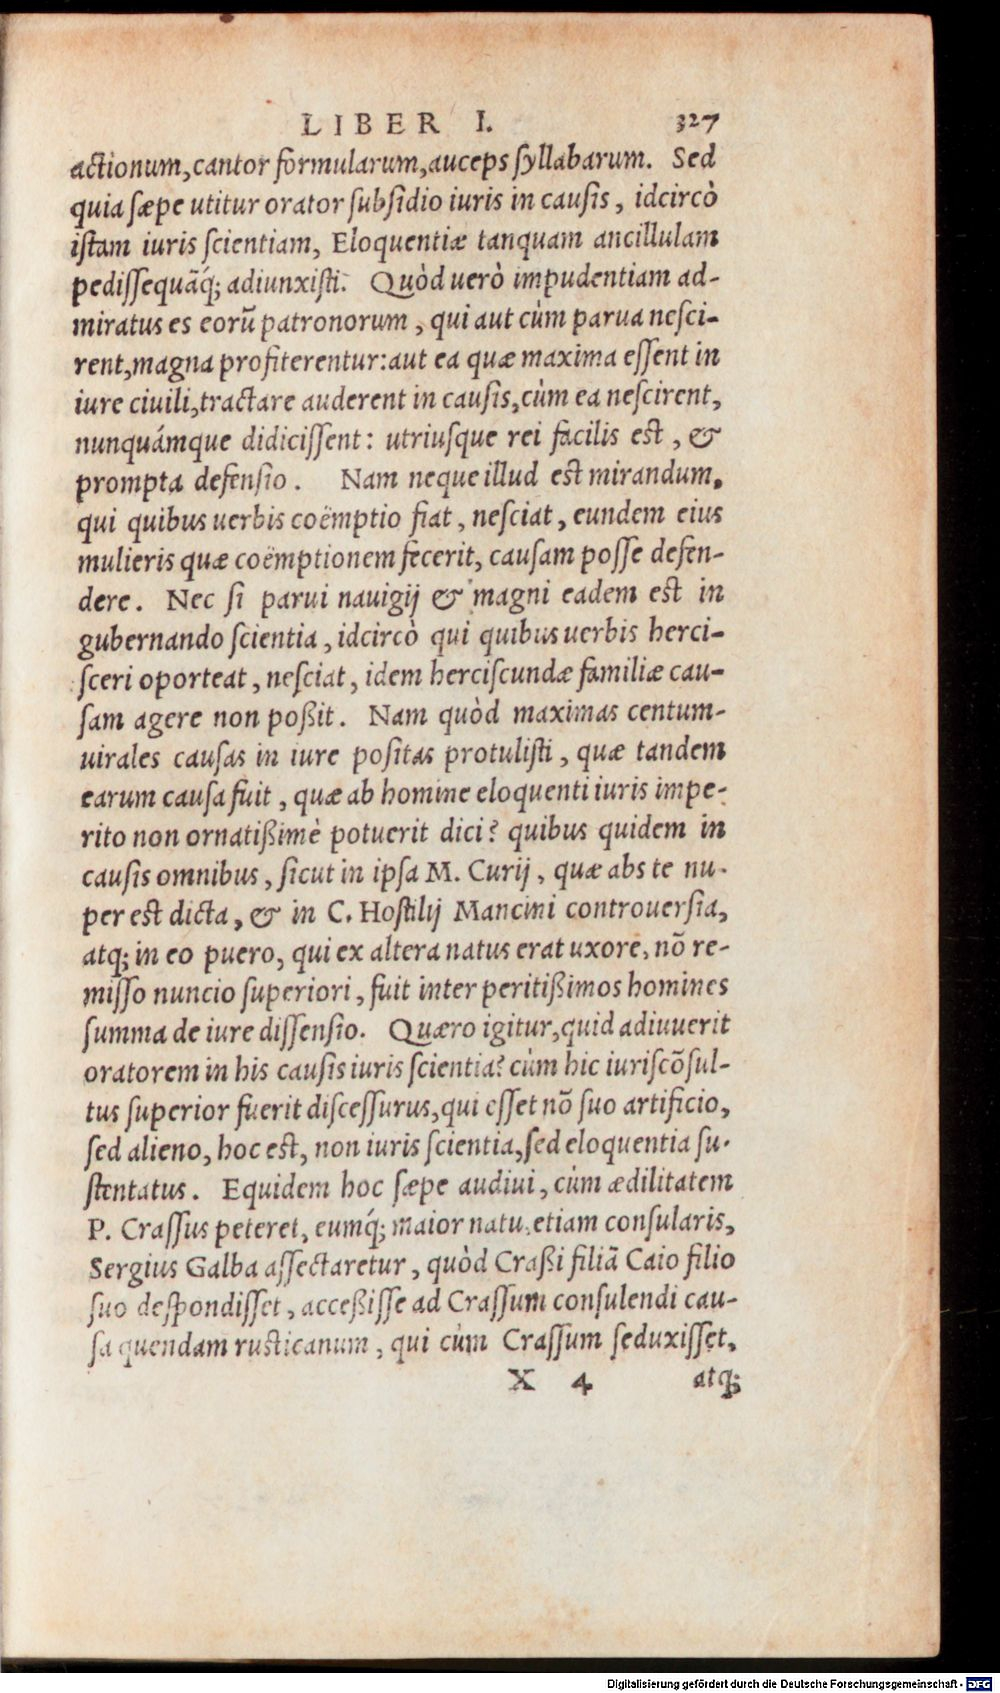 LIBER I. 327
actionum, cantor formularum, auceps syllabarum. Sed
quia sæpe utitur orator subsidio iuris in causis, idcircò
istam iuris scientiam, Eloquentiæ tanquam ancillulam
pedissequãq́; adiunxisti. Quòd uerò impudentiam ad-
miratus es eorũ patronorum, qui aut cùm parua nesci-
rent, magna profiterentur: aut ea quæ maxima essent in
iure ciuili, tractare auderent in causis, cùm ea nescirent,
nunquámque didicissent: utriusque rei facilis est, &
prompta defensio. Nam neque illud est mirandum,
qui quibus uerbis coëmptio fiat, nesciat, eundem eius
mulieris quæ coëmptionem fecerit, causam posse defen-
dere. Nec si parui nauigij & magni eadem est in
gubernando scientia, idcircò qui quibus uerbis herci-
sceri oporteat, nesciat, idem herciscundæ familiæ cau-
sam agere non poßit. Nam quòd maximas centum-
uirales causas in iure positas protulisti, quæ tandem
earum causa fuit, quæ ab homine eloquenti iuris impe-
rito non ornatißimè potuerit dici? quibus quidem in
causis omnibus, sicut in ipsa M. Curij, quæ abs te nu-
per est dicta, & in C. Hostilij Mancini controuersia,
atq; in eo puero, qui ex altera natus erat uxore, nõ re-
misso nuncio superiori, fuit inter peritißimos homines
summa de iure dissensio. Quæro igitur, quid adiuuerit
oratorem in his causis iuris scientia? cùm hic iuriscõsul-
tus superior fuerit discessurus, qui esset nõ suo artificio,
sed alieno, hoc est, non iuris scientia, sed eloquentia su-
stentatus. Equidem hoc sæpe audiui, cùm ædilitatem
P. Crassus peteret, eumq́; maior natu, etiam consularis,
Sergius Galba assectaretur, quòd Craßi filiã Caio filio
suo despondisset, acceßisse ad Crassum consulendi cau-
sa quendam rusticanum, qui cùm Crassum seduxisset,
X 4 atq;
Digitalisierung gefördert durch die Deutsche Forschungsgemeinschaft - DFG